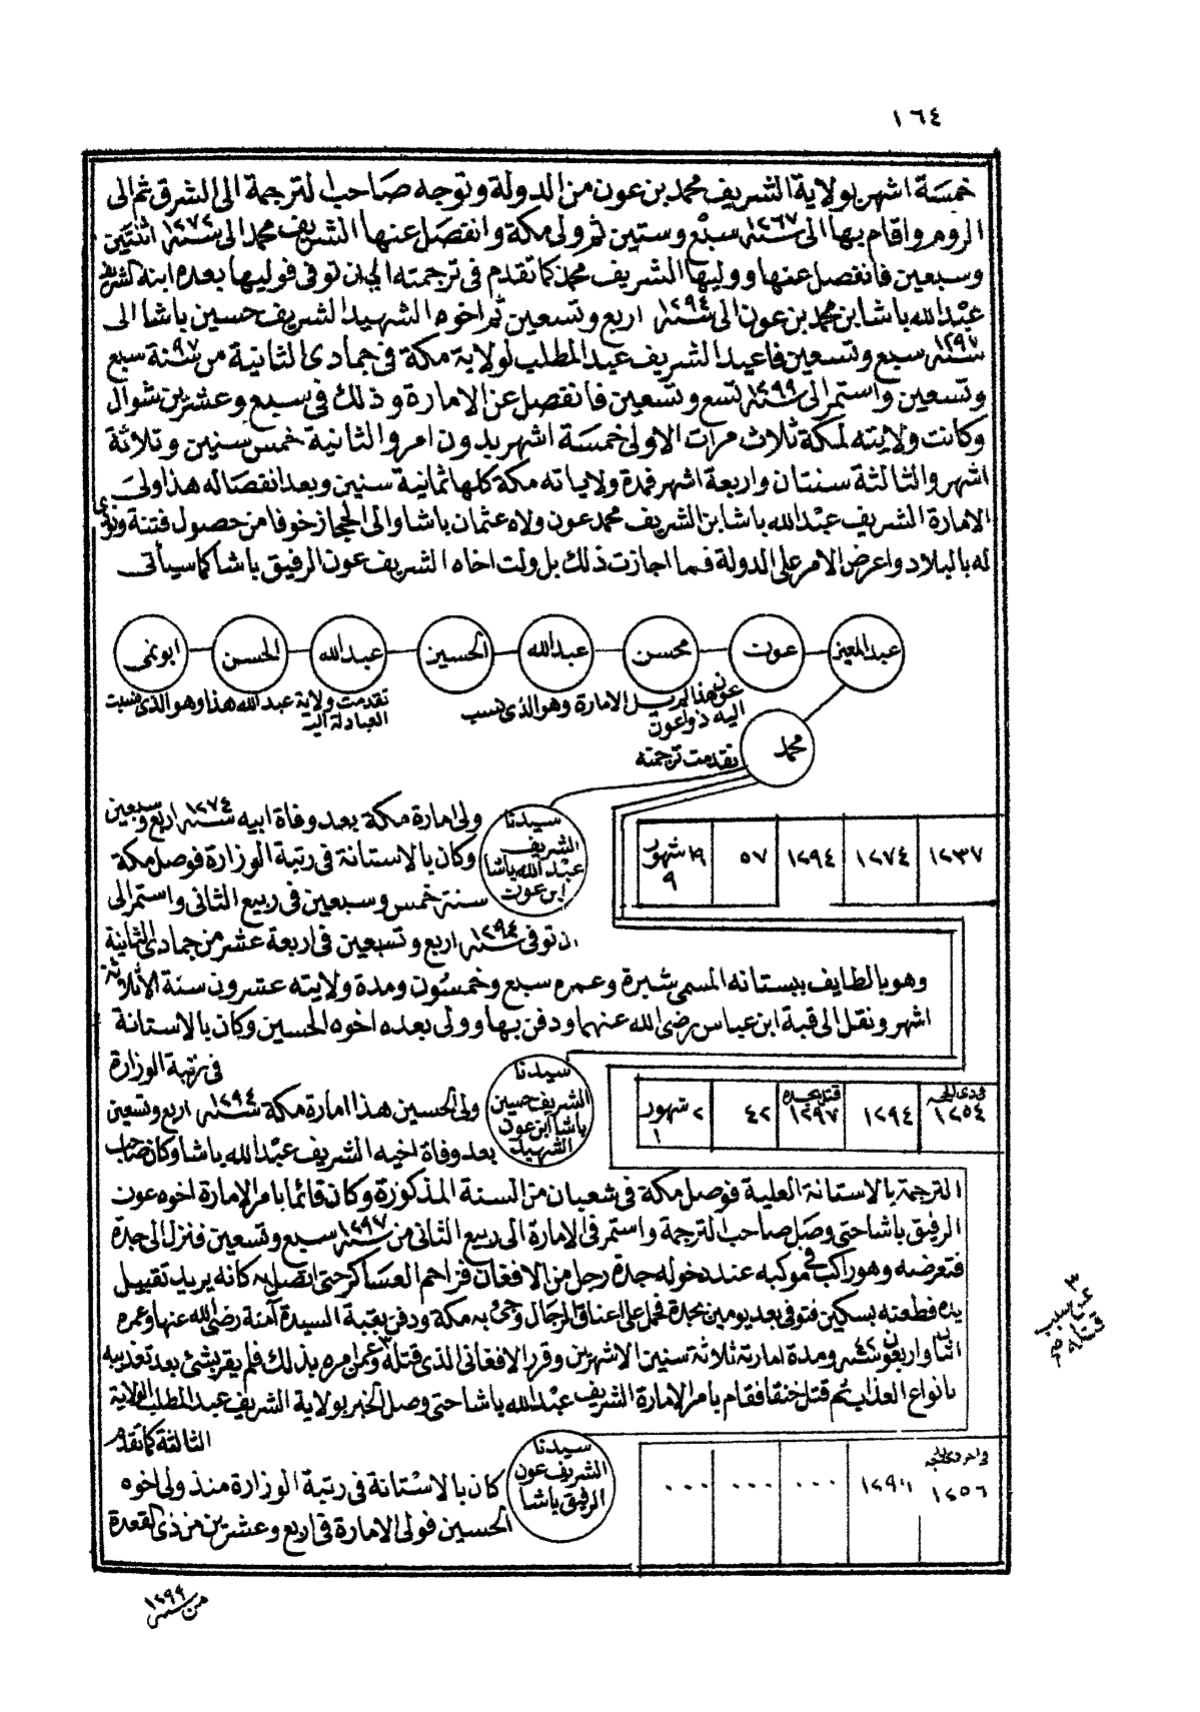 ١٦٤
خمسة اشهر بولاية الشريف محمد بن عون من الدولة وتوجه صاحب الترجمة الى الشرق ثم الى
الروم واقام بها الى سنة ١٢٦٧ سبع وستين ثم ولى مكة وانفصل عنها الشريف محمد الى سنة ١٢٧٢ اثنتين
وسبعين فانفصل عنها ووليها الشريف محمد كما تقدم فى ترجمته الى ان توفى فوليها بعده ابنه الشريف
عبد الله باشا بن محمد بن عون الى سنة ١٢٩٤ اربع وتسعين ثم اخوه الشهيد الشريف حسين باشا الى
سنة ١٢٩٧ سبع وتسعين فاعيد الشريف عبد المطلب لولاية مكة فى جمادى الثانية من سنة ٩٧ سبع
وتسعين واستمر الى سنة ١٢٩٩ تسع وتسعين فانفصل عن الامارة وذلك فى سبع وعشرين شوال
وكانت ولايته لمكة ثلاث مرات الاولى خمسة اشهر بدون امر والثانية خمس سنين وثلاثة
اشهر والثالثة سنتان واربعة اشهر فمدة ولاياته مكة كلها ثمانية سنين وبعد انفصاله هذا ولى
الامارة الشريف عبد الله باشا بن الشريف محمد عون ولاه عثمان باشا والى الحجاز خوفا من حصول فتنة ونودى
له بالبلاد واعرض الامر على الدولة فما اجازت ذلك بل ولت اخاه الشريف عون الرفيق باشا كما سيأتى
عبد المعين عون محسن عبد الله الحسين عبد الله الحسن ابو نمى
عون هذا لم يل الامارة وهو الذى نسب
اليه ذوا عون
تقدمت ولاية عبد الله هذا وهو الذى نسبت
العبادلة اليه
محمد
تقدمت ترجمته
١٢٣٧ ١٢٧٤ ١٢٩٤ ٥٧ ١٩ شهور ٩
سيدنا
الشريف
عبد الله باشا
ابن عون
ولى امارة مكة بعد وفاة ابيه سنة ١٢٧٤ اربع وسبعين
وكان بالاستانة فى رتبة الوزارة فوصل مكة
سنة خمس وسبعين فى ربيع الثانى واستمر الى
ان توفى سنة ١٢٩٤ اربع وتسعين فى اربعة عشر من جمادى الثانية
وهو بالطايف ببستانه المسمى شبرة وعمره سبع وخمسون ومدة ولايته عشرون سنة الا ثلاثة
اشهر ونقل الى قبة ابن عباس رضى الله عنهما ودفن بها وولى بعده اخوه الحسين وكان بالاستانة
فى رتبة الوزارة
فى ذى الحجة ١٢٥٤ ١٢٩٤ قتل بجدة ١٢٩٧ ٤٢ ٢ شهور ١
سيدنا
الشريف حسين
باشا ابن عون
الشهيد
ولى الحسين هذا امارة مكة سنة ١٢٩٤ اربع وتسعين
بعد وفاة اخيه الشريف عبد الله باشا وكان صاحب
الترجمة بالاستانة العلية فوصل مكة فى شعبان من السنة المذكورة وكان قائما بامر الامارة اخوه عون
الرفيق باشا حتى وصل صاحب الترجمة واستمر فى الامارة الى ربيع الثانى من سنة ١٢٩٧ سبع وتسعين فنزل الى جدة
فتعرضه وهو راكب فى موكبه عند دخوله جدة رجل من الافغان فزاحم العساكر حتى اتصل به كانه يريد تقبيل
يده فطعنه بسكين فتوفى بعد يومين بجدة فحمل على اعناق الرجال وجئ به مكة ودفن بقبة السيدة آمنة رضى الله عنها وعمره
اثنان واربعون ٤٢ سنة ومدة امارته ثلاثة سنين الا شهرين وقرر الافغانى الذى قتله ٣ وعن امره بذلك فلم يقر بشئ بعد تعذيبه
بانواع العذاب ثم قتل خنقا فقام بامر الامارة الشريف عبد الله باشا حتى وصل الخبر بولاية الشريف عبد المطلب الولاية
الثالثة كما تقدم
٣
عن سبب
قتله
صح
١٢٥٦ ١٢٩٩ ٠٠٠ ٠٠٠ ٠٠٠
سيدنا
الشريف عون
الرفيق باشا
كان بالاستانة فى رتبة الوزارة منذ ولى اخوه
الحسين فولى الامارة فى اربع وعشرين من ذى القعدة
من سنة ١٢٩٩